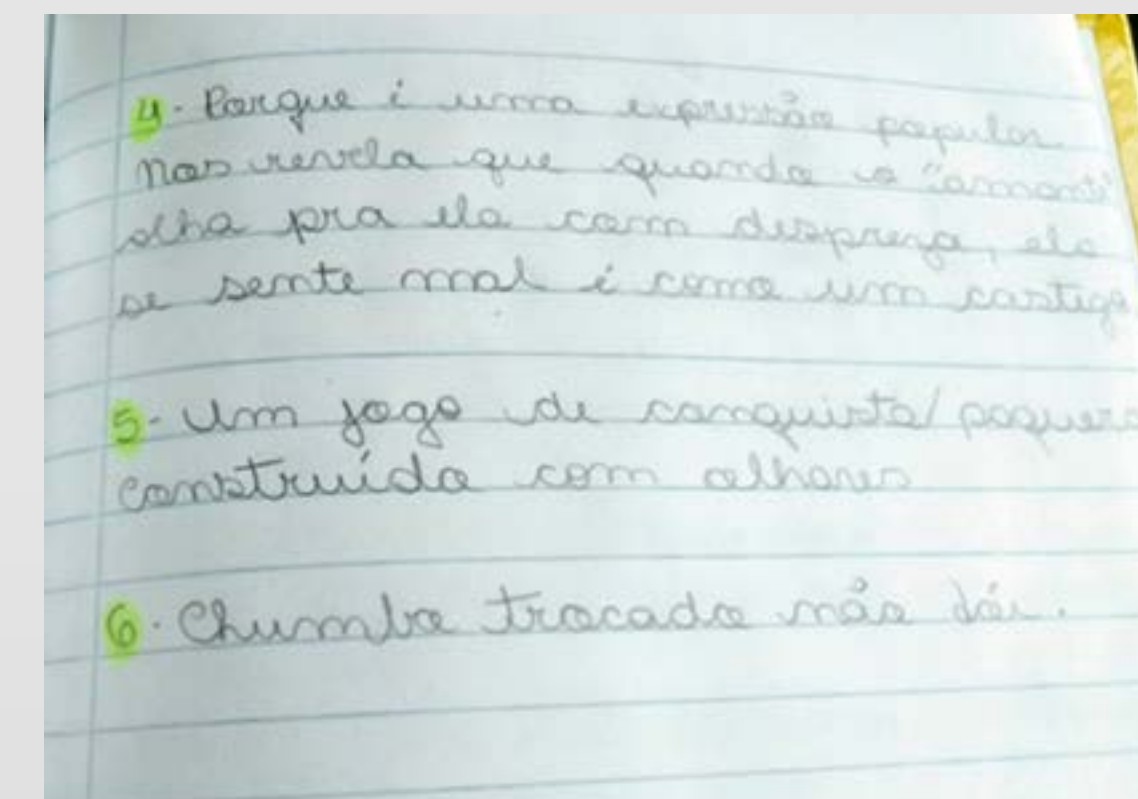 4. Porque é uma expressão popular.
Nos revela que quando o "amante"
olha pra ela com despreza, ela
se sente mal é como um castigo
5- Um jogo de conquista/paquera
construído com olhares
6. Chumbo trocado não dói.